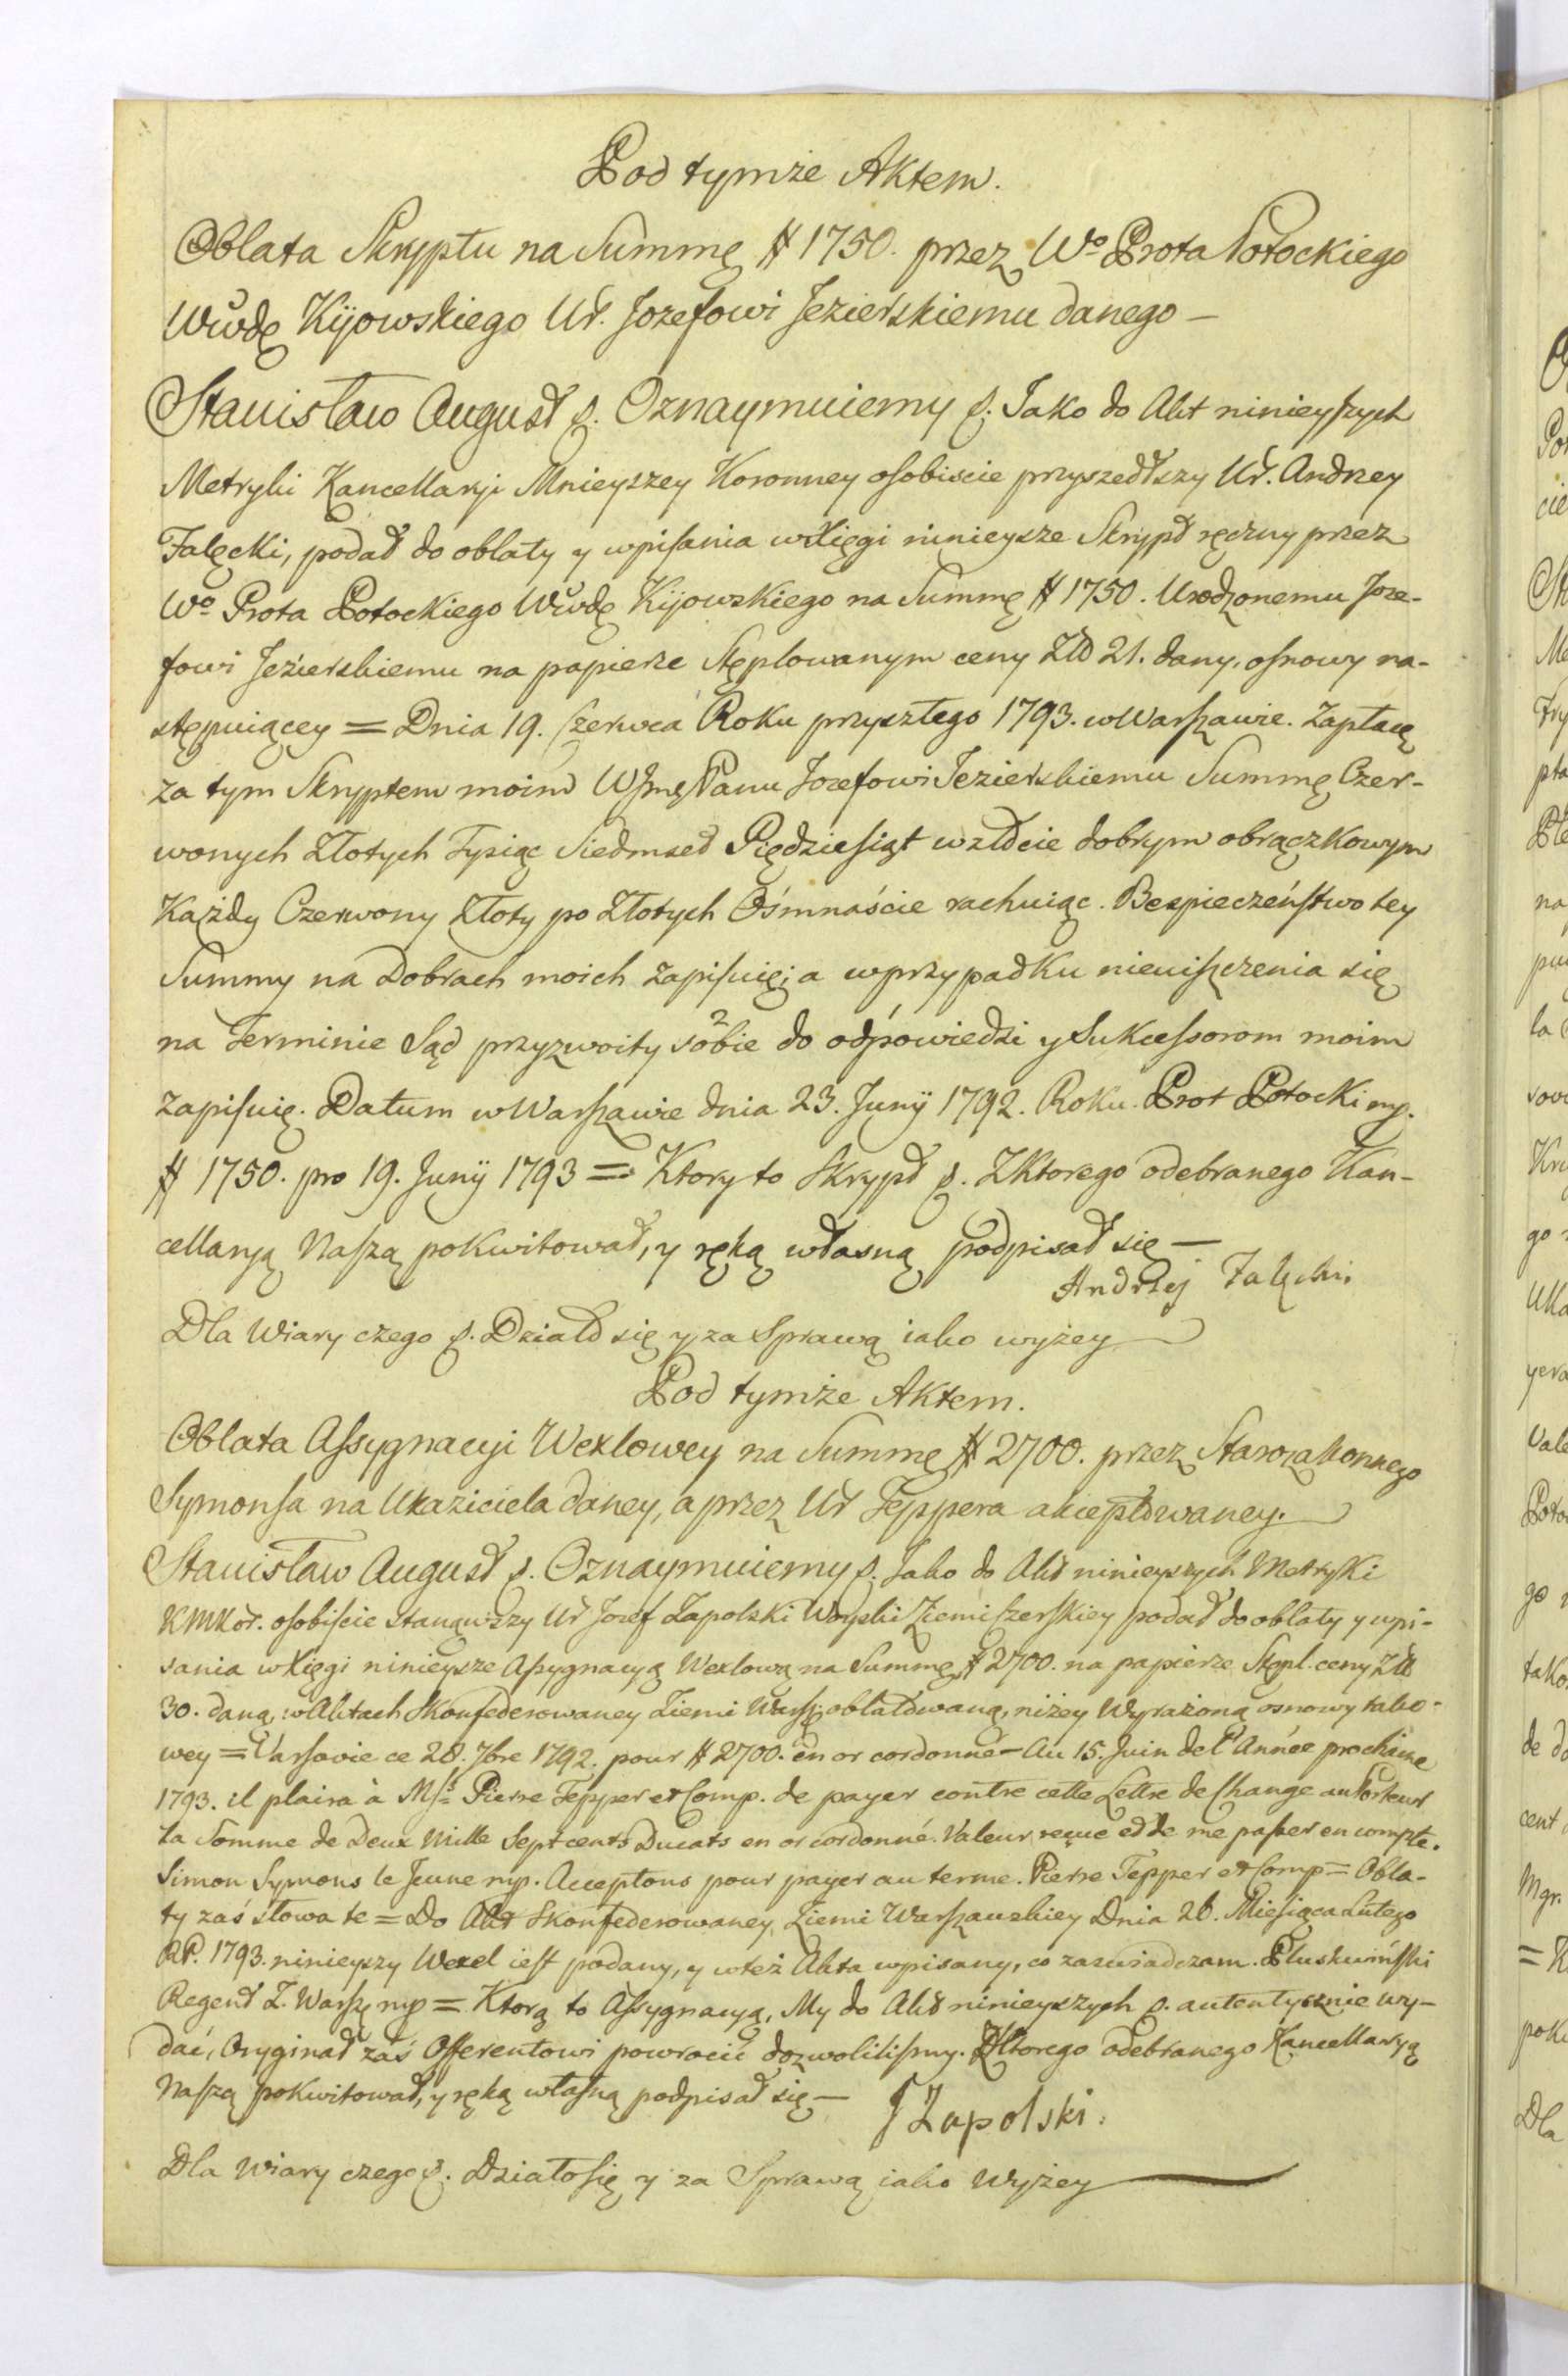 Pod tymże Aktem.
Oblata Skryptu na Summę # 1750. przez Wo Prota Potockiego
Wwdę Kijowskiego Ur. Jozefowi Jezierskiemu danego —
Stanisław August p. Oznaymuiemy p. Jako do Akt ninieyszych
Metryki Kancellaryi Mnieyszey Koronney osobiscie przyszedłszy Ur. Andrzey
Falęcki, podał do oblaty y wpisania w Xięgi ninieysze Skrypt ręczny przez
Wo Prota Potockiego Wwdę Kijowskiego na Summę # 1750. Urodzonemu Joze-
fowi Jezierskiemu na papierze Stęplowanym ceny Złł 21. dany, osnowy na-
stępuiącey = Dnia 19. Czerwca Roku przyszłego 1793. w Warszawie. Zapłacę
za tym Skryptem moim WJmę Panu Jozefowi Jezierskiemu Summę Czer-
wonych Złotych Tysiąc Siedmset Pięćdziesiąt w złocie dobrym obrączkowym
Każdy Czerwony Złoty po Złotych Ośmnaście rachuiąc. Bespieczeństwo tey
Summy na Dobrach moich zapisuię; a w przypadku nieuiszczenia się
na Terminie Sąd przyzwoity sobie do odpowiedzi y Sukcessorom moim
zapisuię. Datum w Warszawie dnia 23. Junÿ 1792. Roku. Prot Potocki mp.
# 1750. pro 19. Junÿ 1793 = Ktory to Skrypt p. Z Ktorego odebranego Kan-
cellaryą Naszą pokwitował, y ręką własną podpisał się —
Andrzej Falęcki.
Dla Wiary czego p. Działo się y za Sprawą iako wyżey
Pod tymże Aktem.
Oblata Assygnacyi Wexlowey na Summę # 2700. przez Starozakonnego
Symonsa na Ukaziciela daney, a przez Ur Teppera akceptowaney.
Stanisław August p. Oznaymuiemy p. Jako do Akt ninieyszych Metryki
KMKor. osobiscie stanąwszy Ur Jozef Zapolski Woyski Ziemi Czerskiey podał do oblaty y wpi-
sania w Xięgi ninieysze Assygnacyą Wexlową na Summę # 2700. na papierze Stępl. ceny Złł
30. daną, w Aktach Skonfederowaney Ziemi Warsz: oblatowaną, niżey Wyrażoną osnowy tako-
wey = Varsovie ce 28. 7bre 1792. pour # 2700. en or cordonné — Au 15. Juin de l'Année prochaine
1793. il plaira à Mss Pierre Tepper et Comp. de payer contre cette Lettre de Change au Porteur
la Somme de Deux Mille Sept cents Ducats en or cordonné. Valeur reçue et de me passer en compte.
Simon Symons le Jeune mp. Acceptons pour payer au terme. Pierre Tepper et Comp = Obla-
ty zaś słowa te = Do Akt Skonfederowaney Ziemi Warszawskiey Dnia 28. Miesiąca Lutego
RP. 1793. ninieyszy Wexel iest podany, y w też Akta wpisany, co zaswiadczam. Pluskwiński
Regent Z. Warsz mp = Ktorą to Assygnacyą, My do Akt ninieyszych p. autentycznie wy-
dać, Oryginał zaś Offerentowi powrocić dozwolilismy. Z Ktorego odebranego Kancellaryą
Naszą pokwitował, y ręką własną podpisał się —
J Zapolski.
Dla Wiary czego p. Działo się y za Sprawą iako Wyżey